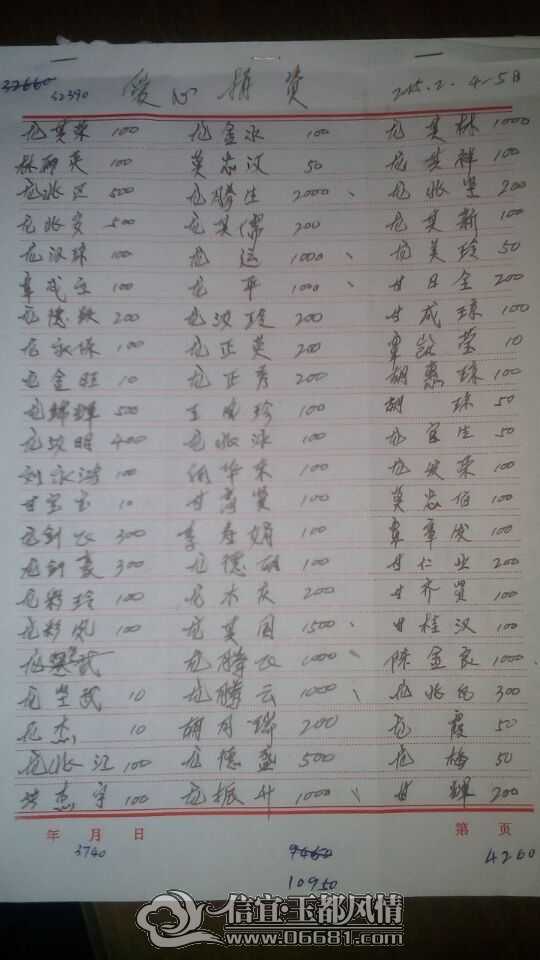 32660 52390 爱心捐资 2015.2.4-5日
龙其荣 100 龙金永 100 龙其林 1000
100 莫忠汉 50 龙其祥 100
龙兆区 500 龙腾生 2000 龙兆坚 200
龙兆安 500 龙其儒 200 龙其新 100
龙汉球 100 龙运 1000 龙美玲 50
100 龙平 1000 甘日全 200
200 龙汉玲 200 甘成琼 100
龙永保 100 龙正英 200 10
龙金旺 10 龙正秀 200 胡惠琼 100
龙辉 500 王凤珍 100 胡琼 50
龙汉明 400 龙兆泳 100 龙官生 50
刘永鸿 100 伍华东 100 龙发荣 100
甘宝玉 10 甘 贤 100 莫忠伯 100
龙剑飞 300 李寿娟 100 100
龙剑豪 300 龙德 100 甘仁业 200
龙彩玲 100 龙木庆 200 甘齐贤 100
龙彩凤 100 龙其周 1500 甘桂汉 100
龙腾飞 1000 陈金良 1000
龙坚武 10 龙腾云 1000 龙兆 300
龙杰 10 胡月瑞 200 龙霞 50
龙兆江 100 龙德盛 500 龙梅 50
洪杰宇 100 龙振升 1000 甘辉 200
年 月 日 第 页
3740 9460 4260
10950
信宜·玉都风情
www.06681.com